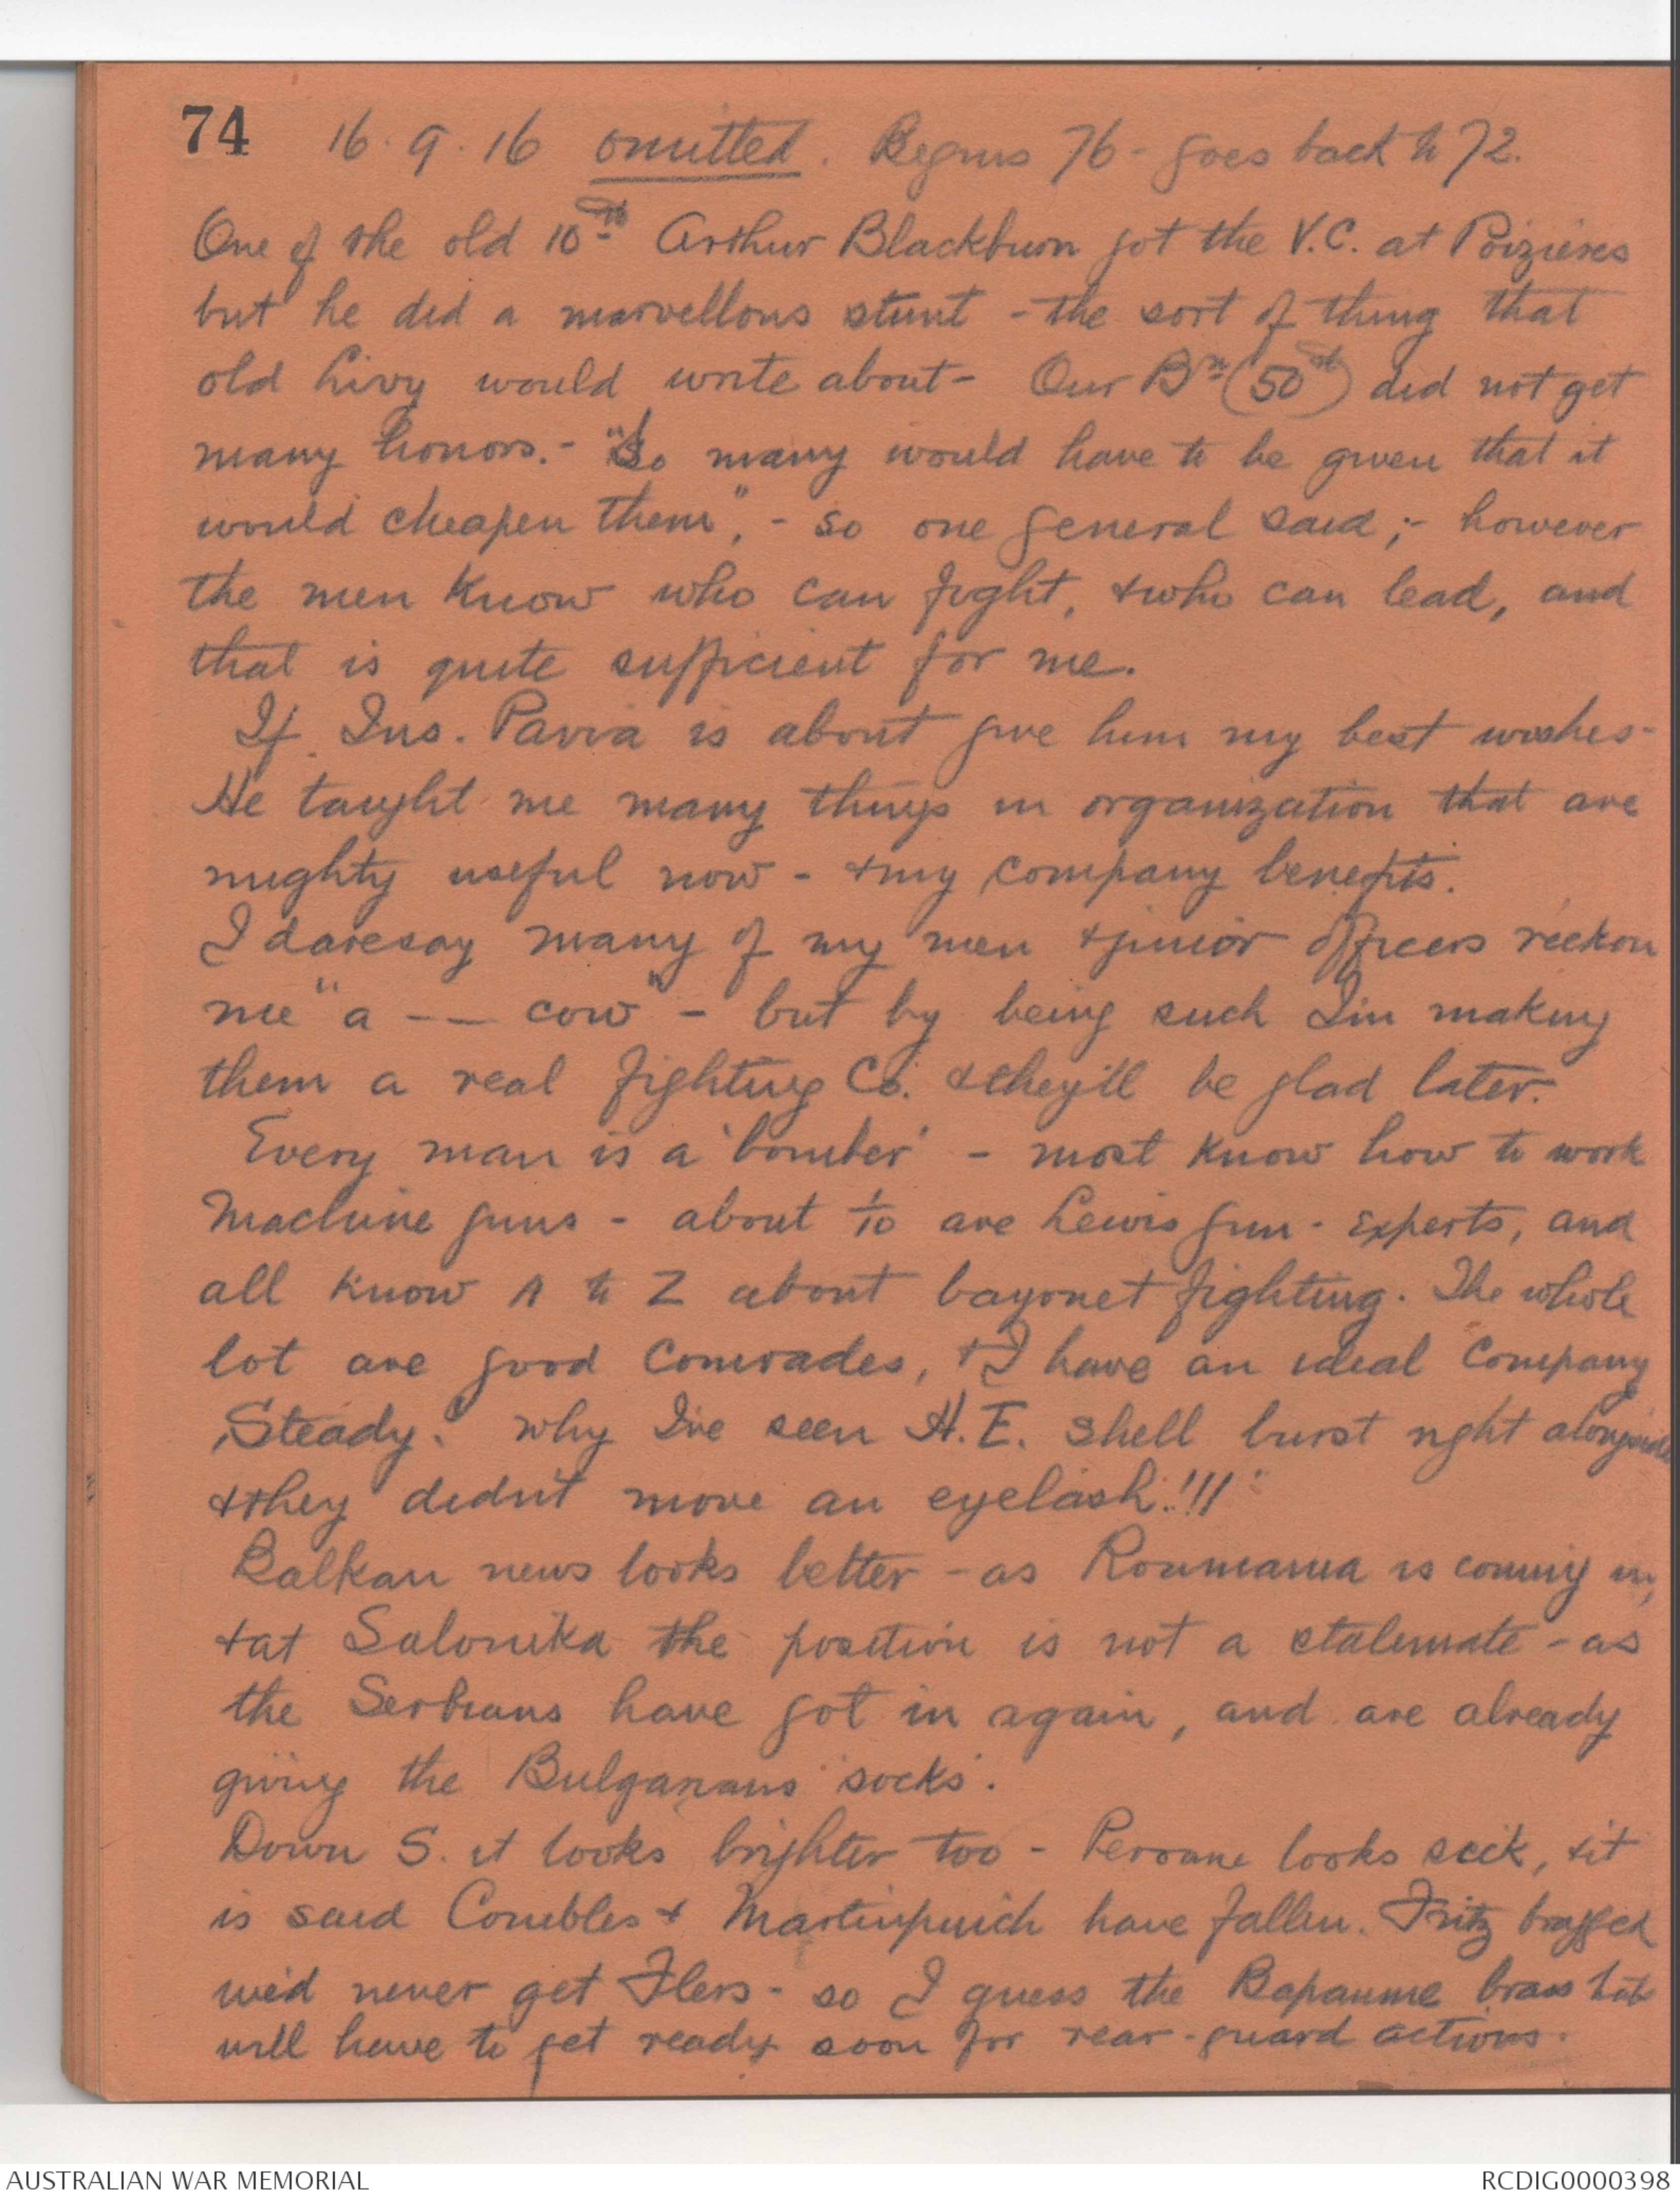 74 16.9.16 omitted. Begins 76 - goes back to 72.
One of the old 10th Arthur Blackburn got the V.C. at Poizieres
but he did a marvellous stunt - the sort of thing that
old Livy would write about - Our Bn (50th) did not get
many honors. - "So many would have to be given that it
would cheapen them", - so one general said ;- however
the men know who can fight, & who can lead, and
that is quite sufficient for me.
If Ins. Pavia is about give him my best wishes -
He taught me many things in organization that are
mighty useful now - & my company benefits.
I daresay many of my men & junior officers reckon
me "a -- cow" - but by being such I'm making
them a real fighting Co. & they'll be glad later.
Every man is a 'bomber' - most know how to work
Machine guns - about 1/10 are Lewis gun - experts, and
all know A to Z about bayonet fighting. The whole
lot are good comrades, & I have an ideal company
Steady. why I've seen H.E. shell burst right alongside
& they didn't move an eyelash!!!!
Balkan news looks better - as Roumania is coming in,
& at Salonika the position is not a stalemate - as
the Serbians have got in again, and are already
giving the Bulgarians 'socks'.
Down S. it looks brighter too - Peronne looks sick, & it
is said Combles & Martinpuich have fallen. Fritz bragged
we'd never get Flers - so I guess the Bapaume brass hats
will have to get ready soon for rear-guard actions.
AUSTRALIAN WAR MEMORIAL
RCDIG0000398